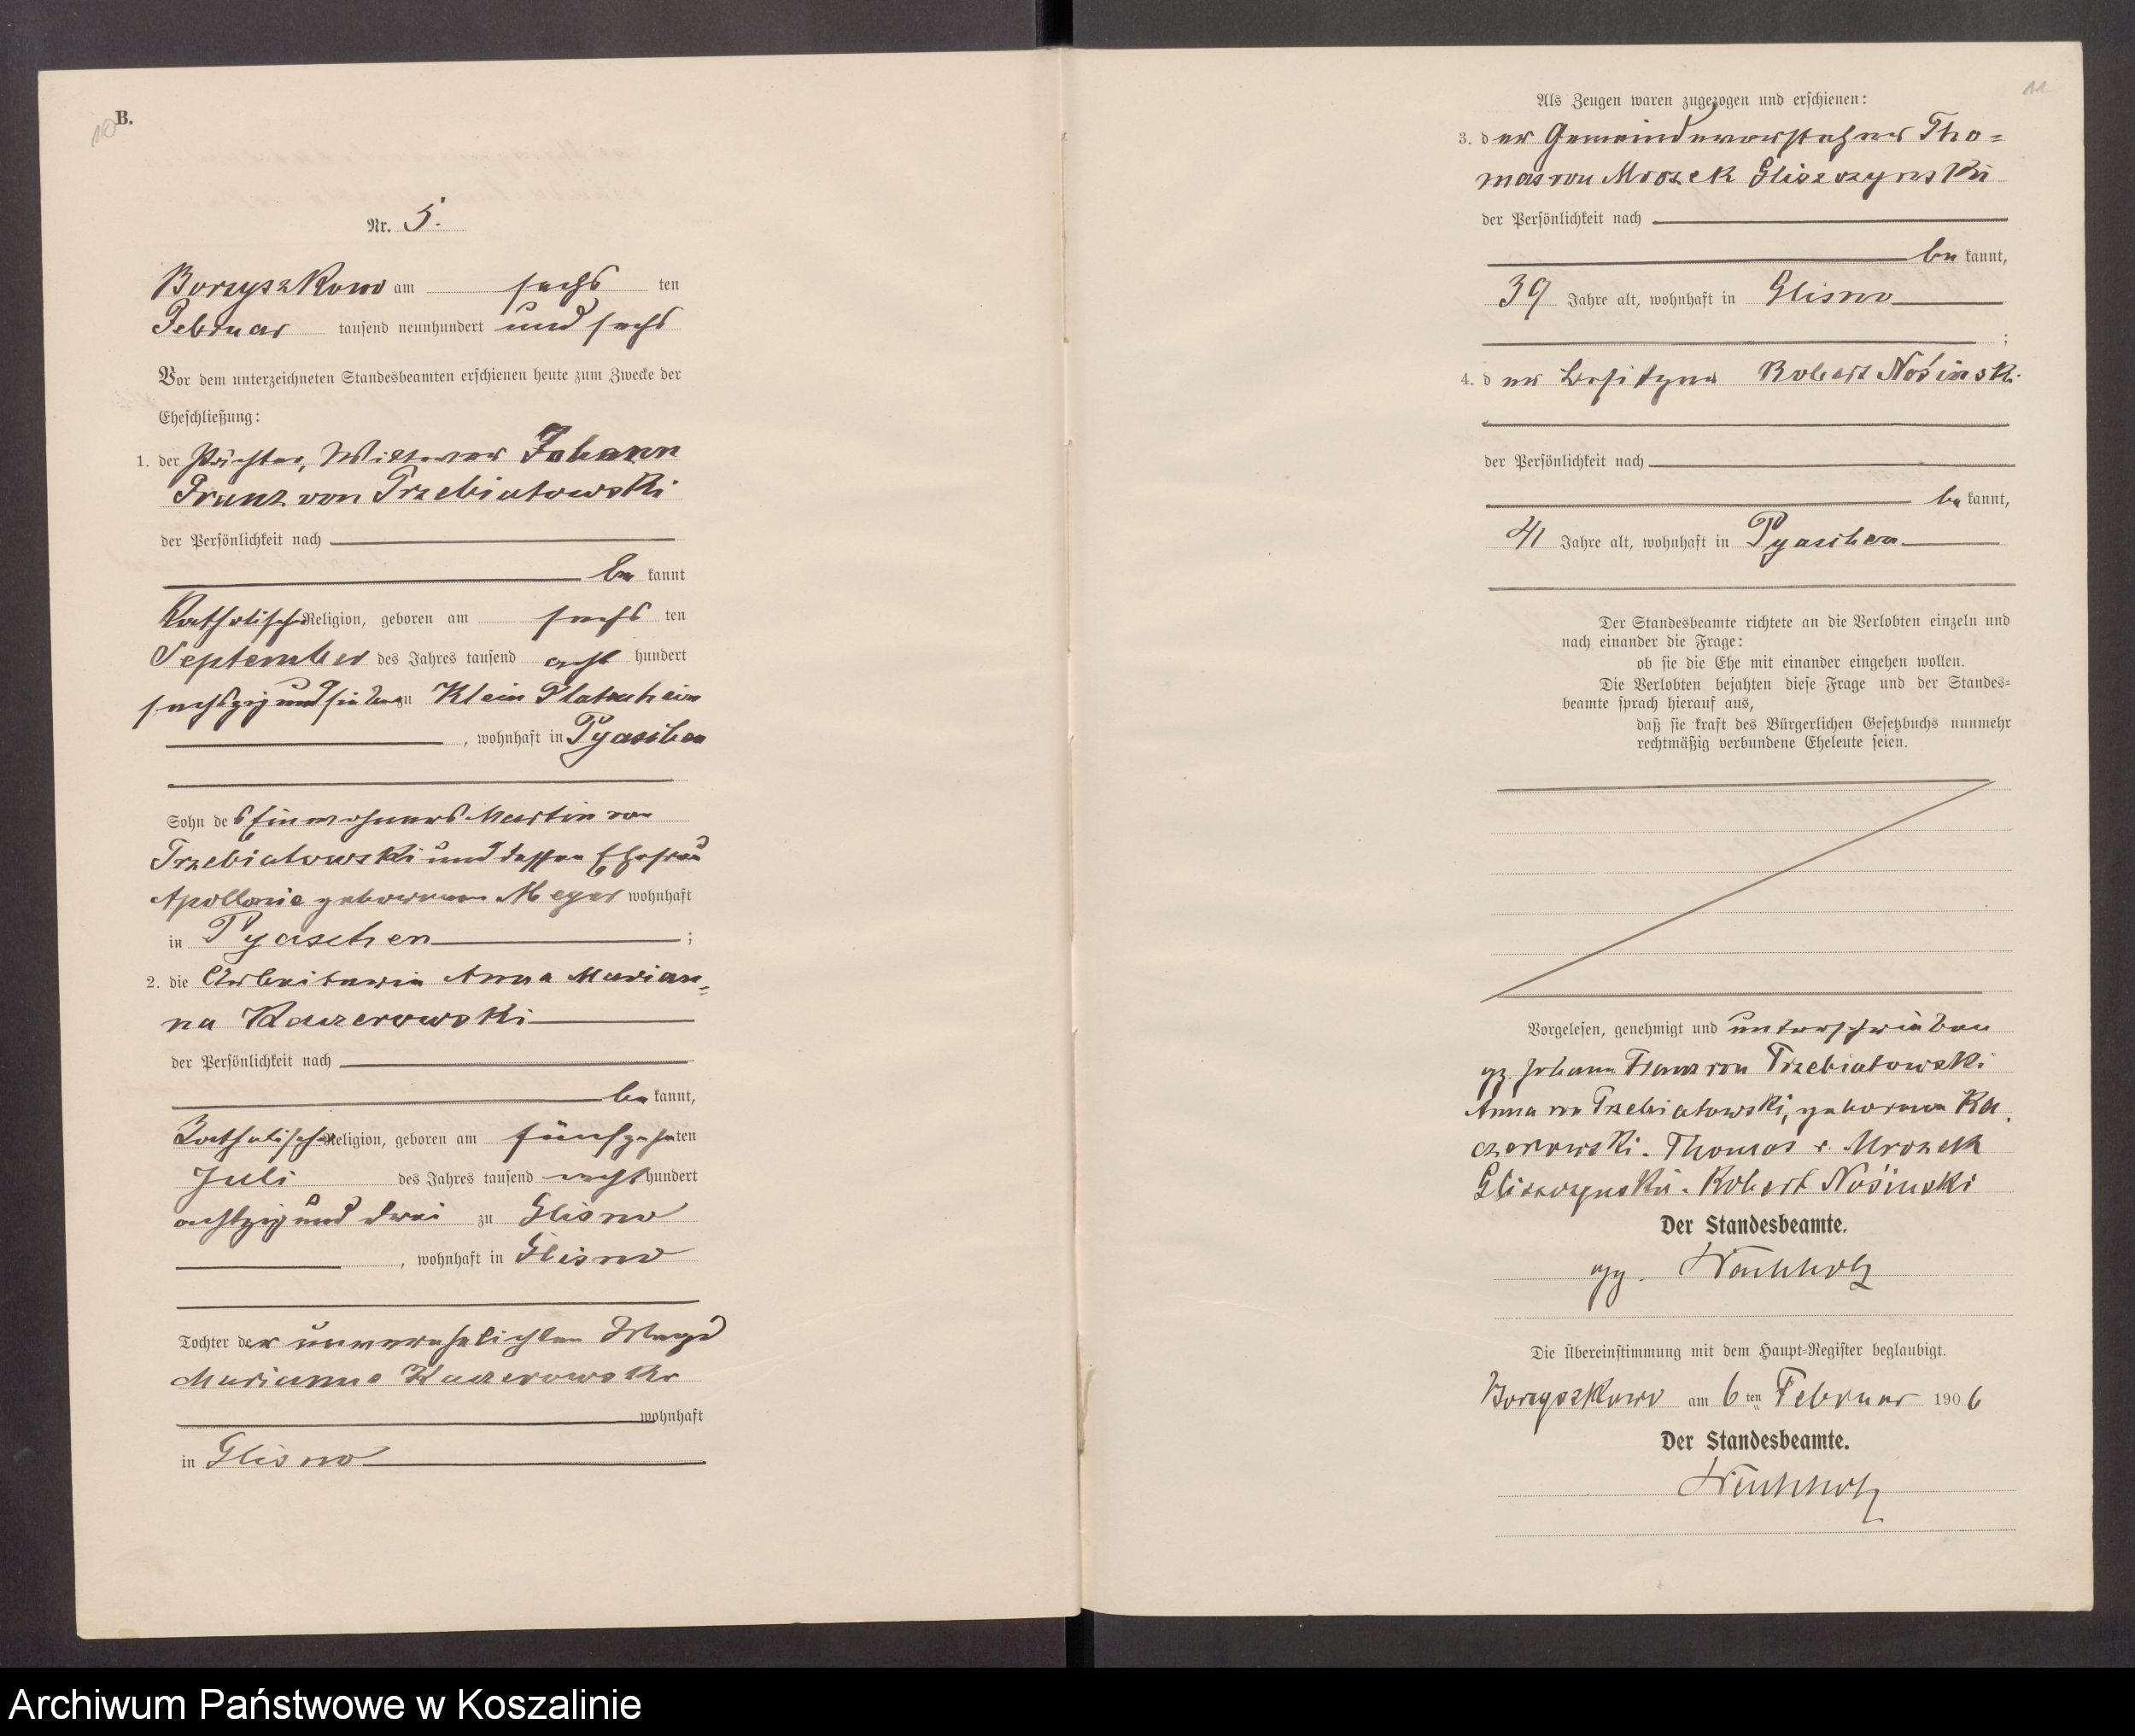 B.
10
Nr. 5.
Borzyszkowo am sechs ten
Februar tausend neunhundert und sechs
Vor dem unterzeichneten Standesbeamten erschienen heute zum Zwecke der
Eheschließung:
1. der Pächter, Wittwer Johann
Franz von Trzebiatowski
der Persönlichkeit nach
be kannt
Katholischer Religion, geboren am sechs ten
September des Jahres tausend acht hundert
sechszig und sieben zu Klein Platenheim
, wohnhaft in Pyaschen
Sohn des Einwohners Martin von
Trzebiatowski und dessen Ehefrau
Apollonia geborenen Meger wohnhaft
in Pyaschen ;
2. die Arbeiterin Anna Marian=
na Kaczerowski
der Persönlichkeit nach
be kannt,
Katholischer Religion, geboren am fünfzehn ten
Juli des Jahres tausend acht hundert
achtzig und drei zu Glisno
, wohnhaft in Glisno
Tochter der unverehelichten Magd
Marianna Kaczerowski
wohnhaft
in Glisno
11
Als Zeugen waren zugezogen und erschienen:
3. der Gemeindevorsteher Tho=
mas von Mrozek Gliszczynski
der Persönlichkeit nach
be kannt,
39 Jahre alt, wohnhaft in Glisno
;
4. der Besitzer Robert Nosinski
der Persönlichkeit nach
be kannt,
41 Jahre alt, wohnhaft in Pyaschen
Der Standesbeamte richtete an die Verlobten einzeln und
nach einander die Frage:
ob sie die Ehe mit einander eingehen wollen.
Die Verlobten bejahten diese Frage und der Standes=
beamte sprach hierauf aus,
daß sie kraft des Bürgerlichen Gesetzbuchs nunmehr
rechtmäßig verbundene Eheleute seien.
Vorgelesen, genehmigt und unterschrieben
gz. Johann Franz von Trzebiatowski
Anna von Trzebiatowski, geborene Ka
czerowski. Thomas v. Mrozek
Gliszczynski. Robert Nosinski
Der Standesbeamte.
gz. Wachholz
Die Übereinstimmung mit dem Haupt=Register beglaubigt.
Borzyszkowo am 6 ten Februar 1906
Der Standesbeamte.
Wachholz
Archiwum Państwowe w Koszalinie